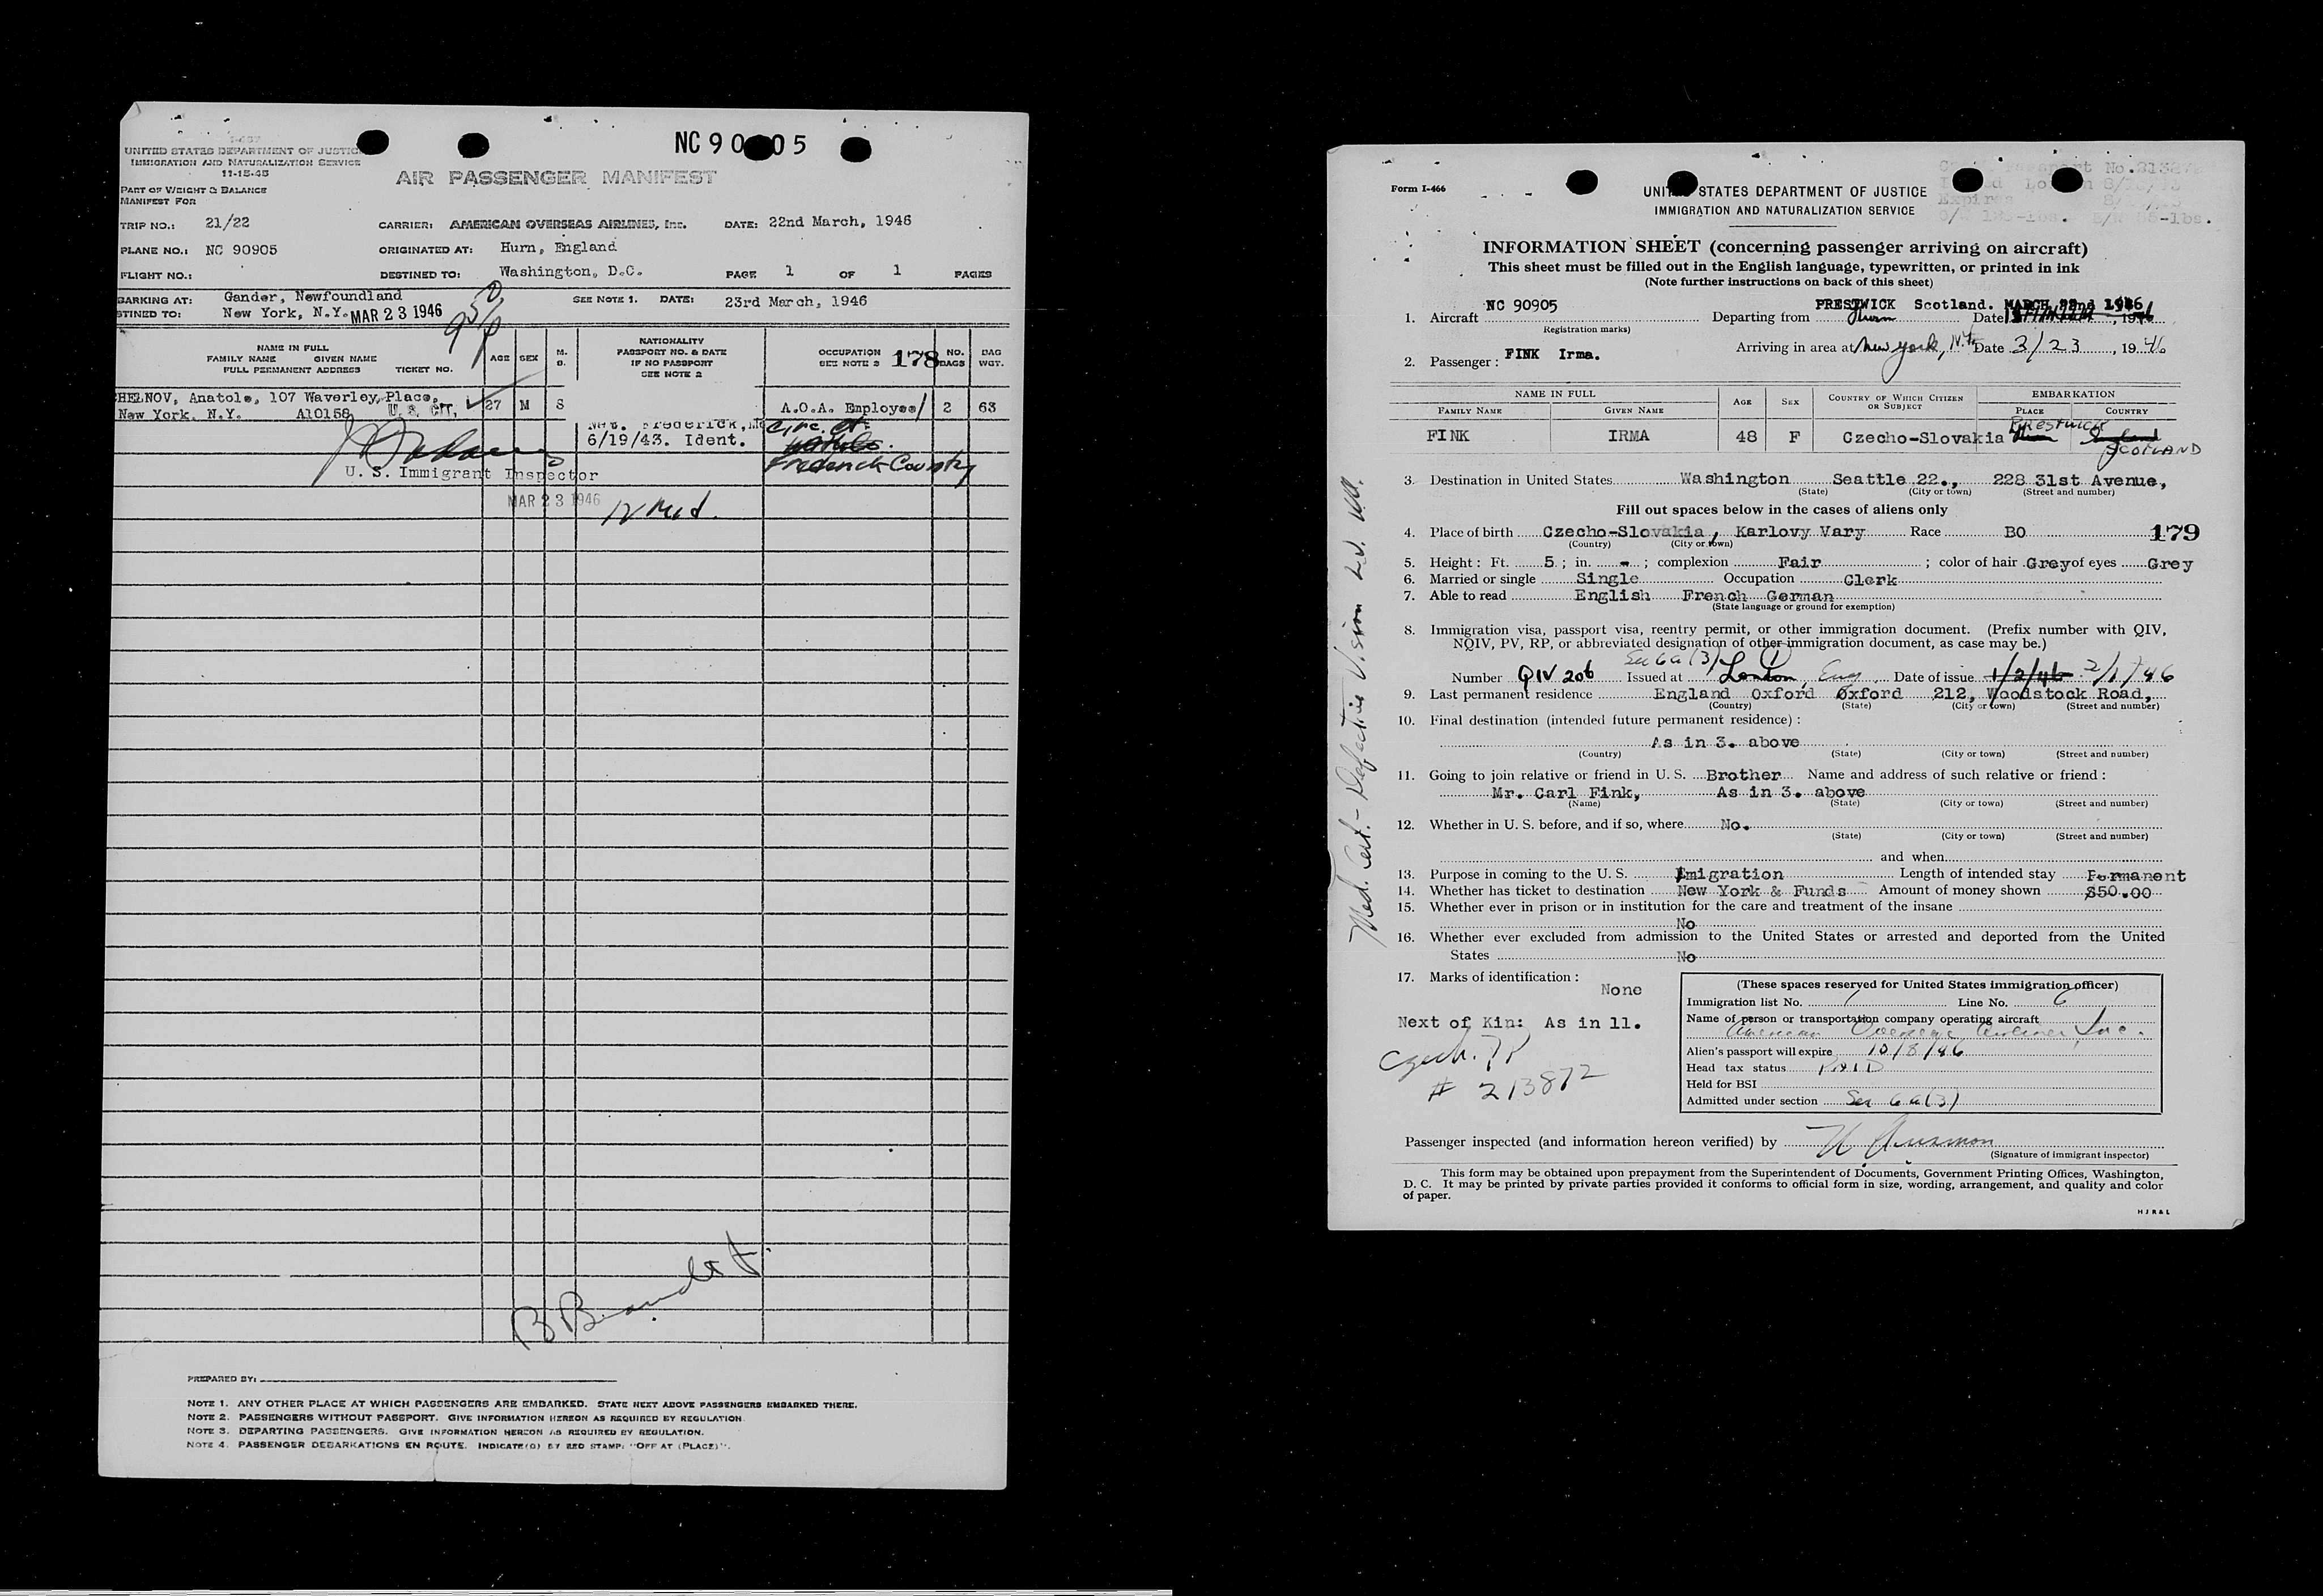 NC 90905
UNITED STATES DEPARTMENT OF JUSTIC
IMMIGRATION AND NATURALIZATION SERVICE
11-15-45
AIR PASSENGER MANIFEST
PART OF WEIGHT & BALANCE
MANIFEST FOR
TRIP NO.: 21/22 CARRIER: AMERICAN OVERSEAS AIRLINES, Inc. DATE: 22nd March, 1946
PLANE NO.: NC 90905 ORIGINATED AT: Hurn, England
FLIGHT NO.: DESTINED TO: Washington, D.C. PAGE 1 OF 1 PAGES
BARKING AT: Gander, Newfoundland SEE NOTE 1. DATE: 23rd March, 1946
STINED TO: New York, N.Y. MAR 23 1946
NAME IN FULL
FAMILY NAME GIVEN NAME
FULL PERMANENT ADDRESS TICKET NO.
AGE SEX M. S.
NATIONALITY
PASSPORT NO. & DATE
IF NO PASSPORT
SEE NOTE 2
OCCUPATION
SEE NOTE 2 178
NO. BAGS
BAG WGT.
HELNOV, Anatole, 107 Waverley, Place,
New York, N.Y. A10158 U.S. CIT, 27 M S A.O.A. Employee/ 2 63
Nat. Frederick, Md
6/19/43. Ident.
Circ. Ct.
Frederick County
U. S. Immigrant Inspector
MAR 23 1946
B Brandt
PREPARED BY:
NOTE 1. ANY OTHER PLACE AT WHICH PASSENGERS ARE EMBARKED. STATE NEXT ABOVE PASSENGERS EMBARKED THERE.
NOTE 2. PASSENGERS WITHOUT PASSPORT. GIVE INFORMATION HEREON AS REQUIRED BY REGULATION.
NOTE 3. DEPARTING PASSENGERS. GIVE INFORMATION HEREON AS REQUIRED BY REGULATION.
NOTE 4. PASSENGER DEBARKATIONS EN ROUTE. INDICATE(D) BY RED STAMP: "OFF AT (PLACE)".
Form I-466
UNITED STATES DEPARTMENT OF JUSTICE
IMMIGRATION AND NATURALIZATION SERVICE
INFORMATION SHEET (concerning passenger arriving on aircraft)
This sheet must be filled out in the English language, typewritten, or printed in ink
(Note further instructions on back of this sheet)
1. Aircraft NC 90905 Departing from PRESTWICK Scotland. Hurn Date MARCH 22nd 1946, 1946
(Registration marks)
Arriving in area at New York, N.Y. Date 3/23, 1946
2. Passenger: FINK Irma.
NAME IN FULL AGE SEX COUNTRY OF WHICH CITIZEN OR SUBJECT EMBARKATION
FAMILY NAME GIVEN NAME PLACE COUNTRY
FINK IRMA 48 F Czecho-Slovakia Prestwick Hurn England SCOTLAND
3. Destination in United States Washington Seattle 22., 228 31st Avenue,
(State) (City or town) (Street and number)
Fill out spaces below in the cases of aliens only
4. Place of birth Czecho-Slovakia, Karlovy Vary Race BO 179
(Country) (City or town)
5. Height: Ft. 5; in. -; complexion Fair; color of hair Grey of eyes Grey
6. Married or single Single Occupation Clerk
7. Able to read English French German
(State language or ground for exemption)
8. Immigration visa, passport visa, reentry permit, or other immigration document. (Prefix number with QIV,
NQIV, PV, RP, or abbreviated designation of other immigration document, as case may be.)
Sec 6a(3)
Number QIV 206 Issued at London, Eng Date of issue 1/2/46 2/1/46
9. Last permanent residence England Oxford Oxford 212, Woodstock Road,
(Country) (State) (City or town) (Street and number)
10. Final destination (intended future permanent residence):
As in 3. above
(Country) (State) (City or town) (Street and number)
11. Going to join relative or friend in U. S. Brother Name and address of such relative or friend:
Mr. Carl Fink, As in 3. above
(Name) (State) (City or town) (Street and number)
12. Whether in U. S. before, and if so, where No.
(State) (City or town) (Street and number)
and when
13. Purpose in coming to the U. S. Imigration Length of intended stay Permanent
14. Whether has ticket to destination New York & Funds Amount of money shown $50.00
15. Whether ever in prison or in institution for the care and treatment of the insane
No
16. Whether ever excluded from admission to the United States or arrested and deported from the United
States No
17. Marks of identification: None
Next of Kin: As in 11.
Czech. PP
# 213872
(These spaces reserved for United States immigration officer)
Immigration list No. 1 Line No. 6
Name of person or transportation company operating aircraft
American Overseas Airlines, Inc.
Alien's passport will expire 10/8/46
Head tax status PAID
Held for BSI
Admitted under section Sec 6a(3)
Passenger inspected (and information hereon verified) by
(Signature of immigrant inspector)
This form may be obtained upon prepayment from the Superintendent of Documents, Government Printing Offices, Washington,
D. C. It may be printed by private parties provided it conforms to official form in size, wording, arrangement, and quality and color
of paper.
H J R & L
Med. Cert. - Defective Vision